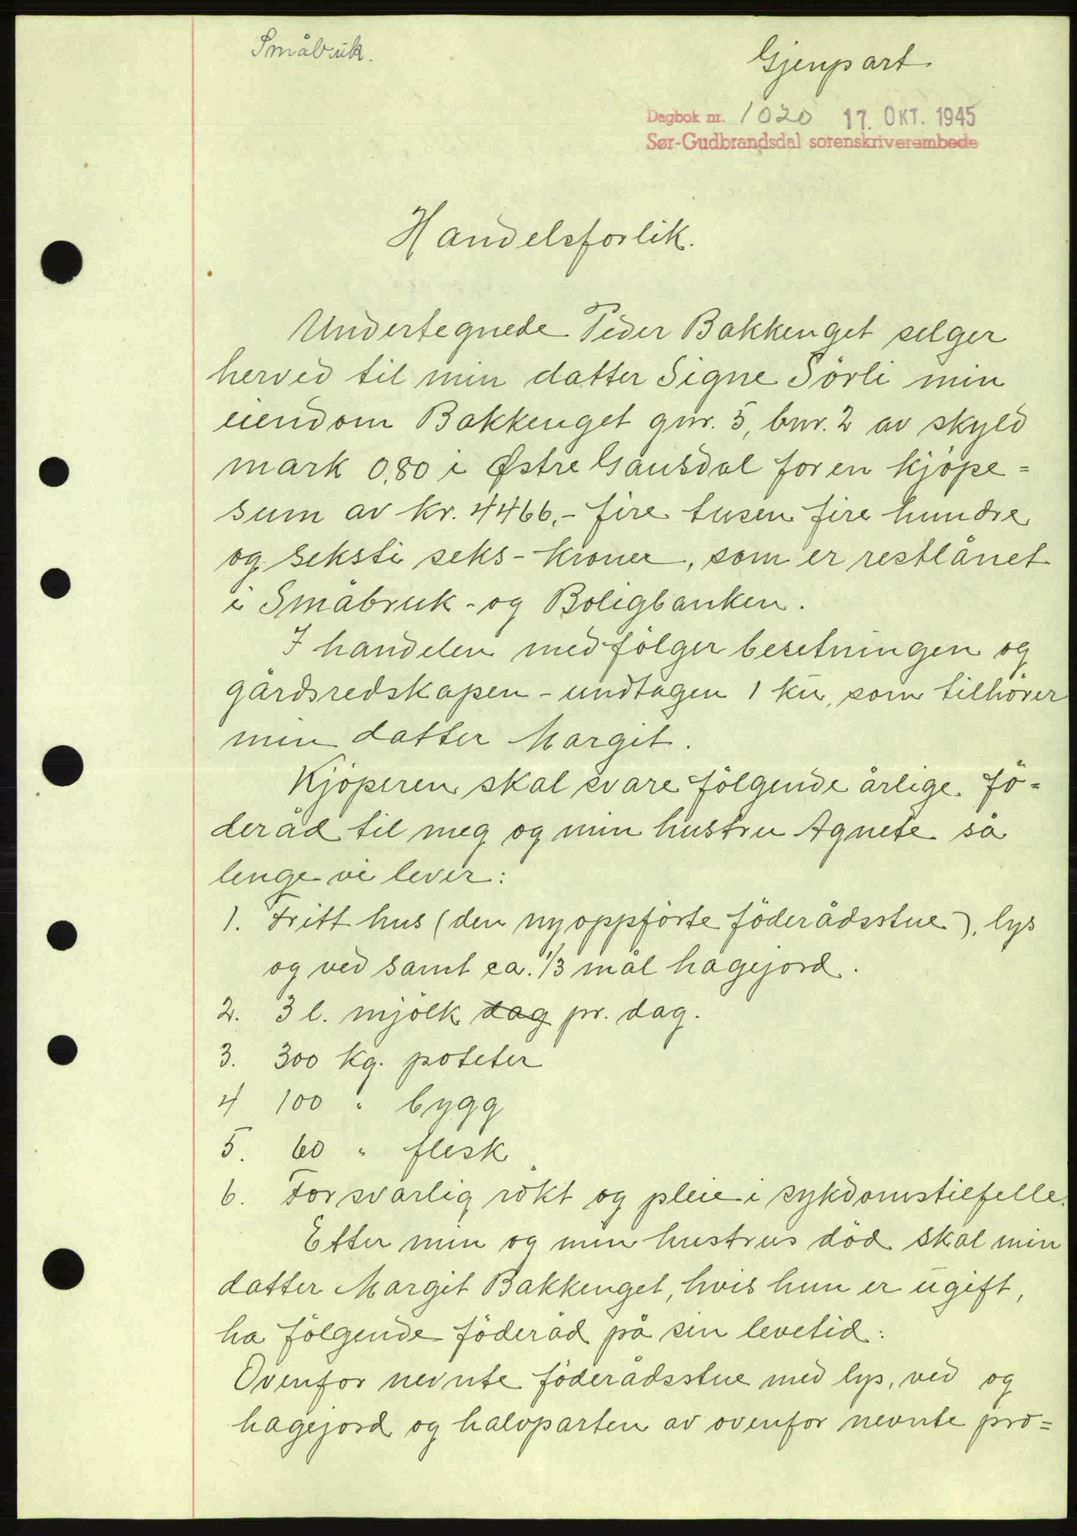 Småbruk.
Gjenpart
Dagbok nr. 1020 17. OKT. 1945
Sør-Gudbrandsdal sorenskriverembede
Handelsforlik.
Undertegnede Peder Bakkenget selger
herved til min datter Signe Sörli min
eiendom Bakkenget gnr. 5, bnr. 2 av skyld
mark 0.80 i Østre Gausdal for en kjöpe=
sum av kr. 4466,- fire tusen fire hundre
og seksti seks - kroner, som er restlånet
i Småbruk- og Boligbanken.
I handelen medfölger besetningen og
gårdsredskapen - undtagen 1 ku, som tilhörer
min datter Margit.
Kjöperen skal svare fölgende årlige fö=
deråd til meg og min hustru Agnete så
lenge vi lever:
1. Fritt hus (den nyoppförte föderådsstue), lys
og ved samt ca. 1/3 mål hagejord.
2. 3 l. mjölk dag pr. dag.
3. 300 kg. poteter
4 100 " bygg
5. 60 " flesk
6. Forsvarlig rökt og pleie i sykdomstilfelle.
Etter min og min hustrus död skal min
datter Margit Bakkenget, hvis hun er ugift,
ha fölgende föderåd på sin levetid:
Ovenfor nevnte föderådsstue med lys, ved og
hagejord og halvparten av ovenfor nevnte pro=